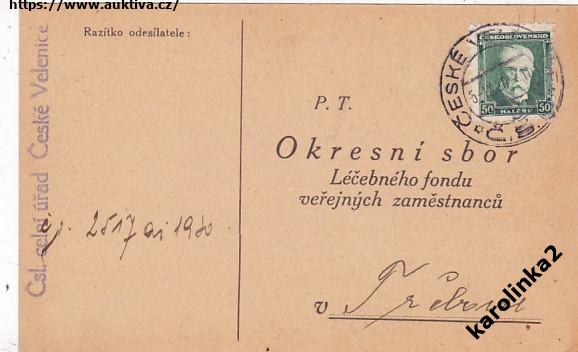 https://www.auktiva.cz/
Razítko odesílatele:
Čsl. celní úřad České Velenice
ČESKOSLOVENSKO
50 HALÉŘŮ 50
ČESKÉ
P. T.
Okresní sbor
Léčebného fondu
veřejných zaměstnanců
č. j. 2517 ai 1930
v
karolinka2